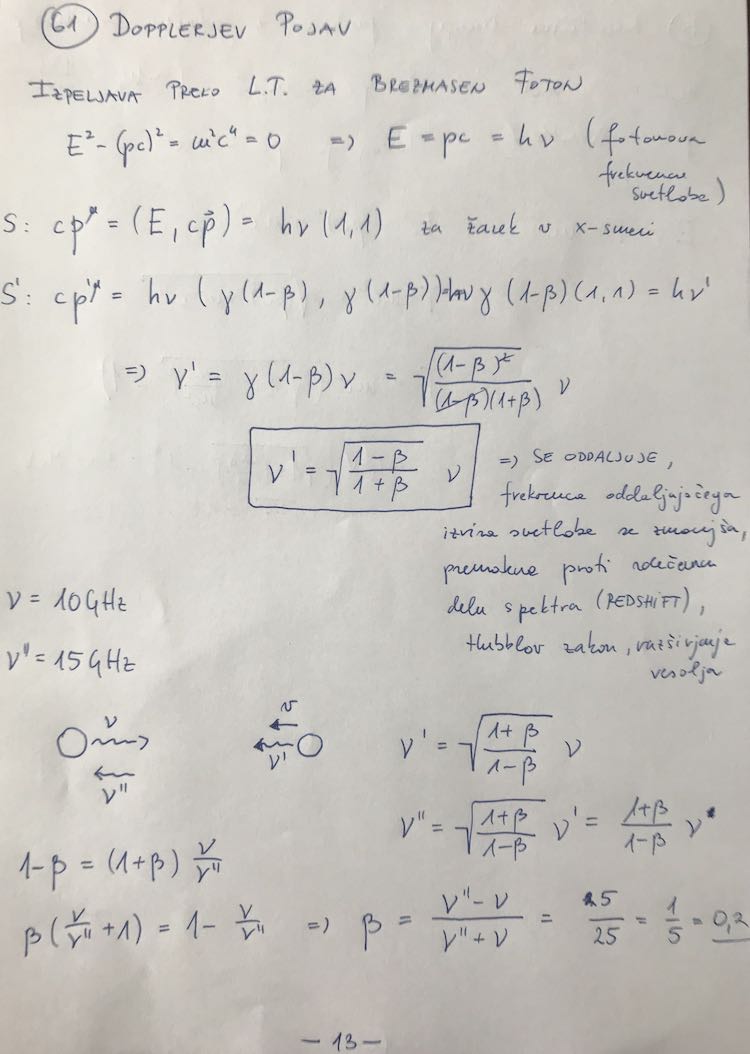 61 DOPPLERJEV POJAV
IZPELJAVA PREKO L.T. ZA BREZMASEN FOTON
E² - (pc)² = m²c⁴ = 0 => E = pc = hν (fotonova
frekvenca
svetlobe)
S: cp^μ = (E, cp⃗) = hν (1,1) za žarek v x-smeri
S': cp'^μ = hν (γ(1-β), γ(1-β)) = hν γ (1-β)(1,1) = hν'
=> ν' = γ(1-β)ν = √((1-β)²/((1-β)(1+β))) ν
ν' = √((1-β)/(1+β)) ν => SE ODDALJUJE,
frekvenca oddaljujočega
izvira svetlobe se zmanjša,
premakne proti rdečemu
delu spektra (REDSHIFT),
Hubblov zakon, razširjanje
vesolja
ν = 10 GHz
ν'' = 15 GHz
ν
ν''
v
ν'
ν' = √((1+β)/(1-β)) ν
ν'' = √((1+β)/(1-β)) ν' = (1+β)/(1-β) ν
1-β = (1+β) ν/ν''
β(ν/ν'' + 1) = 1 - ν/ν'' => β = (ν''-ν)/(ν''+ν) = 5/25 = 1/5 = 0,2
- 13 -